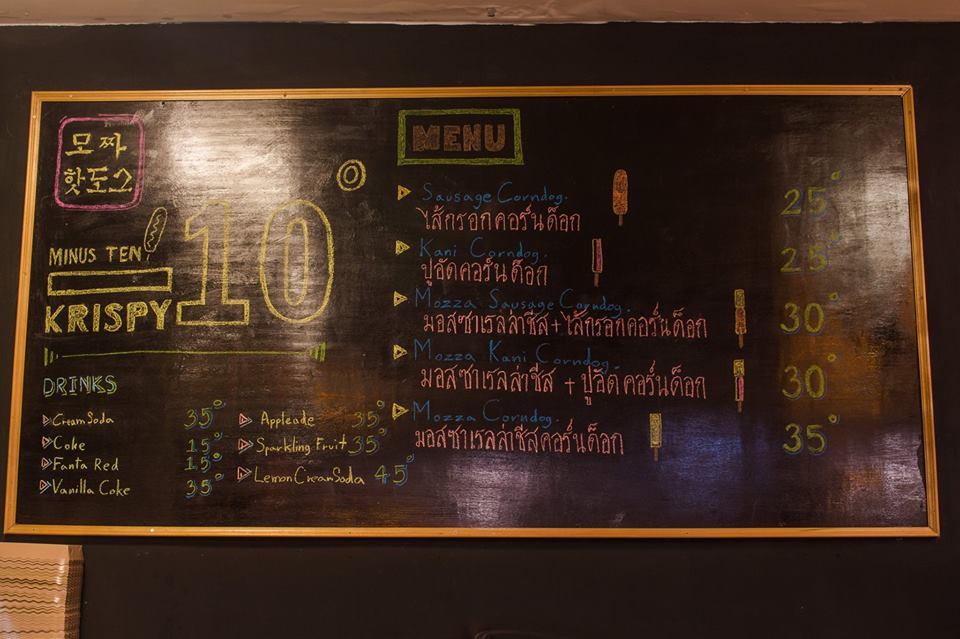 모짜
핫도그
MINUS TEN
KRISPY
10°
DRINKS
CreamSoda 35°
Coke 15°
Fanta Red 15°
Vanilla Coke 35°
Appleade 35°
Sparkling Fruit 35°
Lemon Cream Soda 45°
MENU
Sausage Corndog. 25°
ไส้กรอกคอร์นด็อก
Kani Corndog. 25°
ปูอัดคอร์นด็อก
Mozza Sausage Corndog. 30°
มอสซาเรลล่าชีส+ไส้กรอกคอร์นด็อก
Mozza Kani Corndog. 30°
มอสซาเรลล่าชีส + ปูอัดคอร์นด็อก
Mozza Corndog. 35°
มอสซาเรลล่าชีสคอร์นด็อก